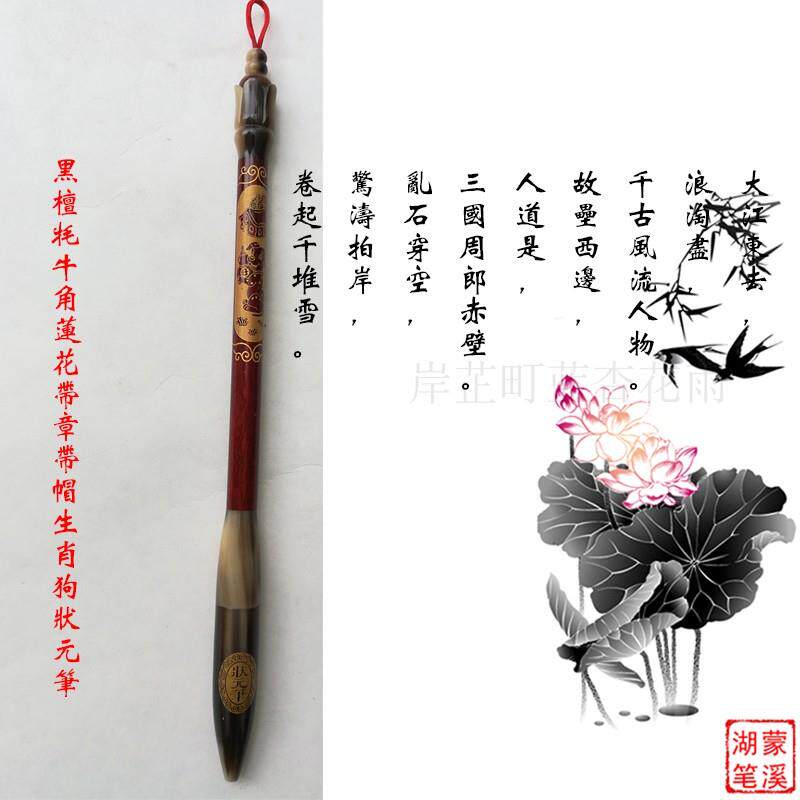 大江東去,
浪淘盡,
千古風流人物。
故壘西邊,
人道是,
三國周郎赤壁。
亂石穿空,
驚濤拍岸,
卷起千堆雪。
黑檀牦牛角蓮花帶章帶帽生肖狗狀元筆
狀元
岸芷町蓝杏花雨
蒙溪
湖笔